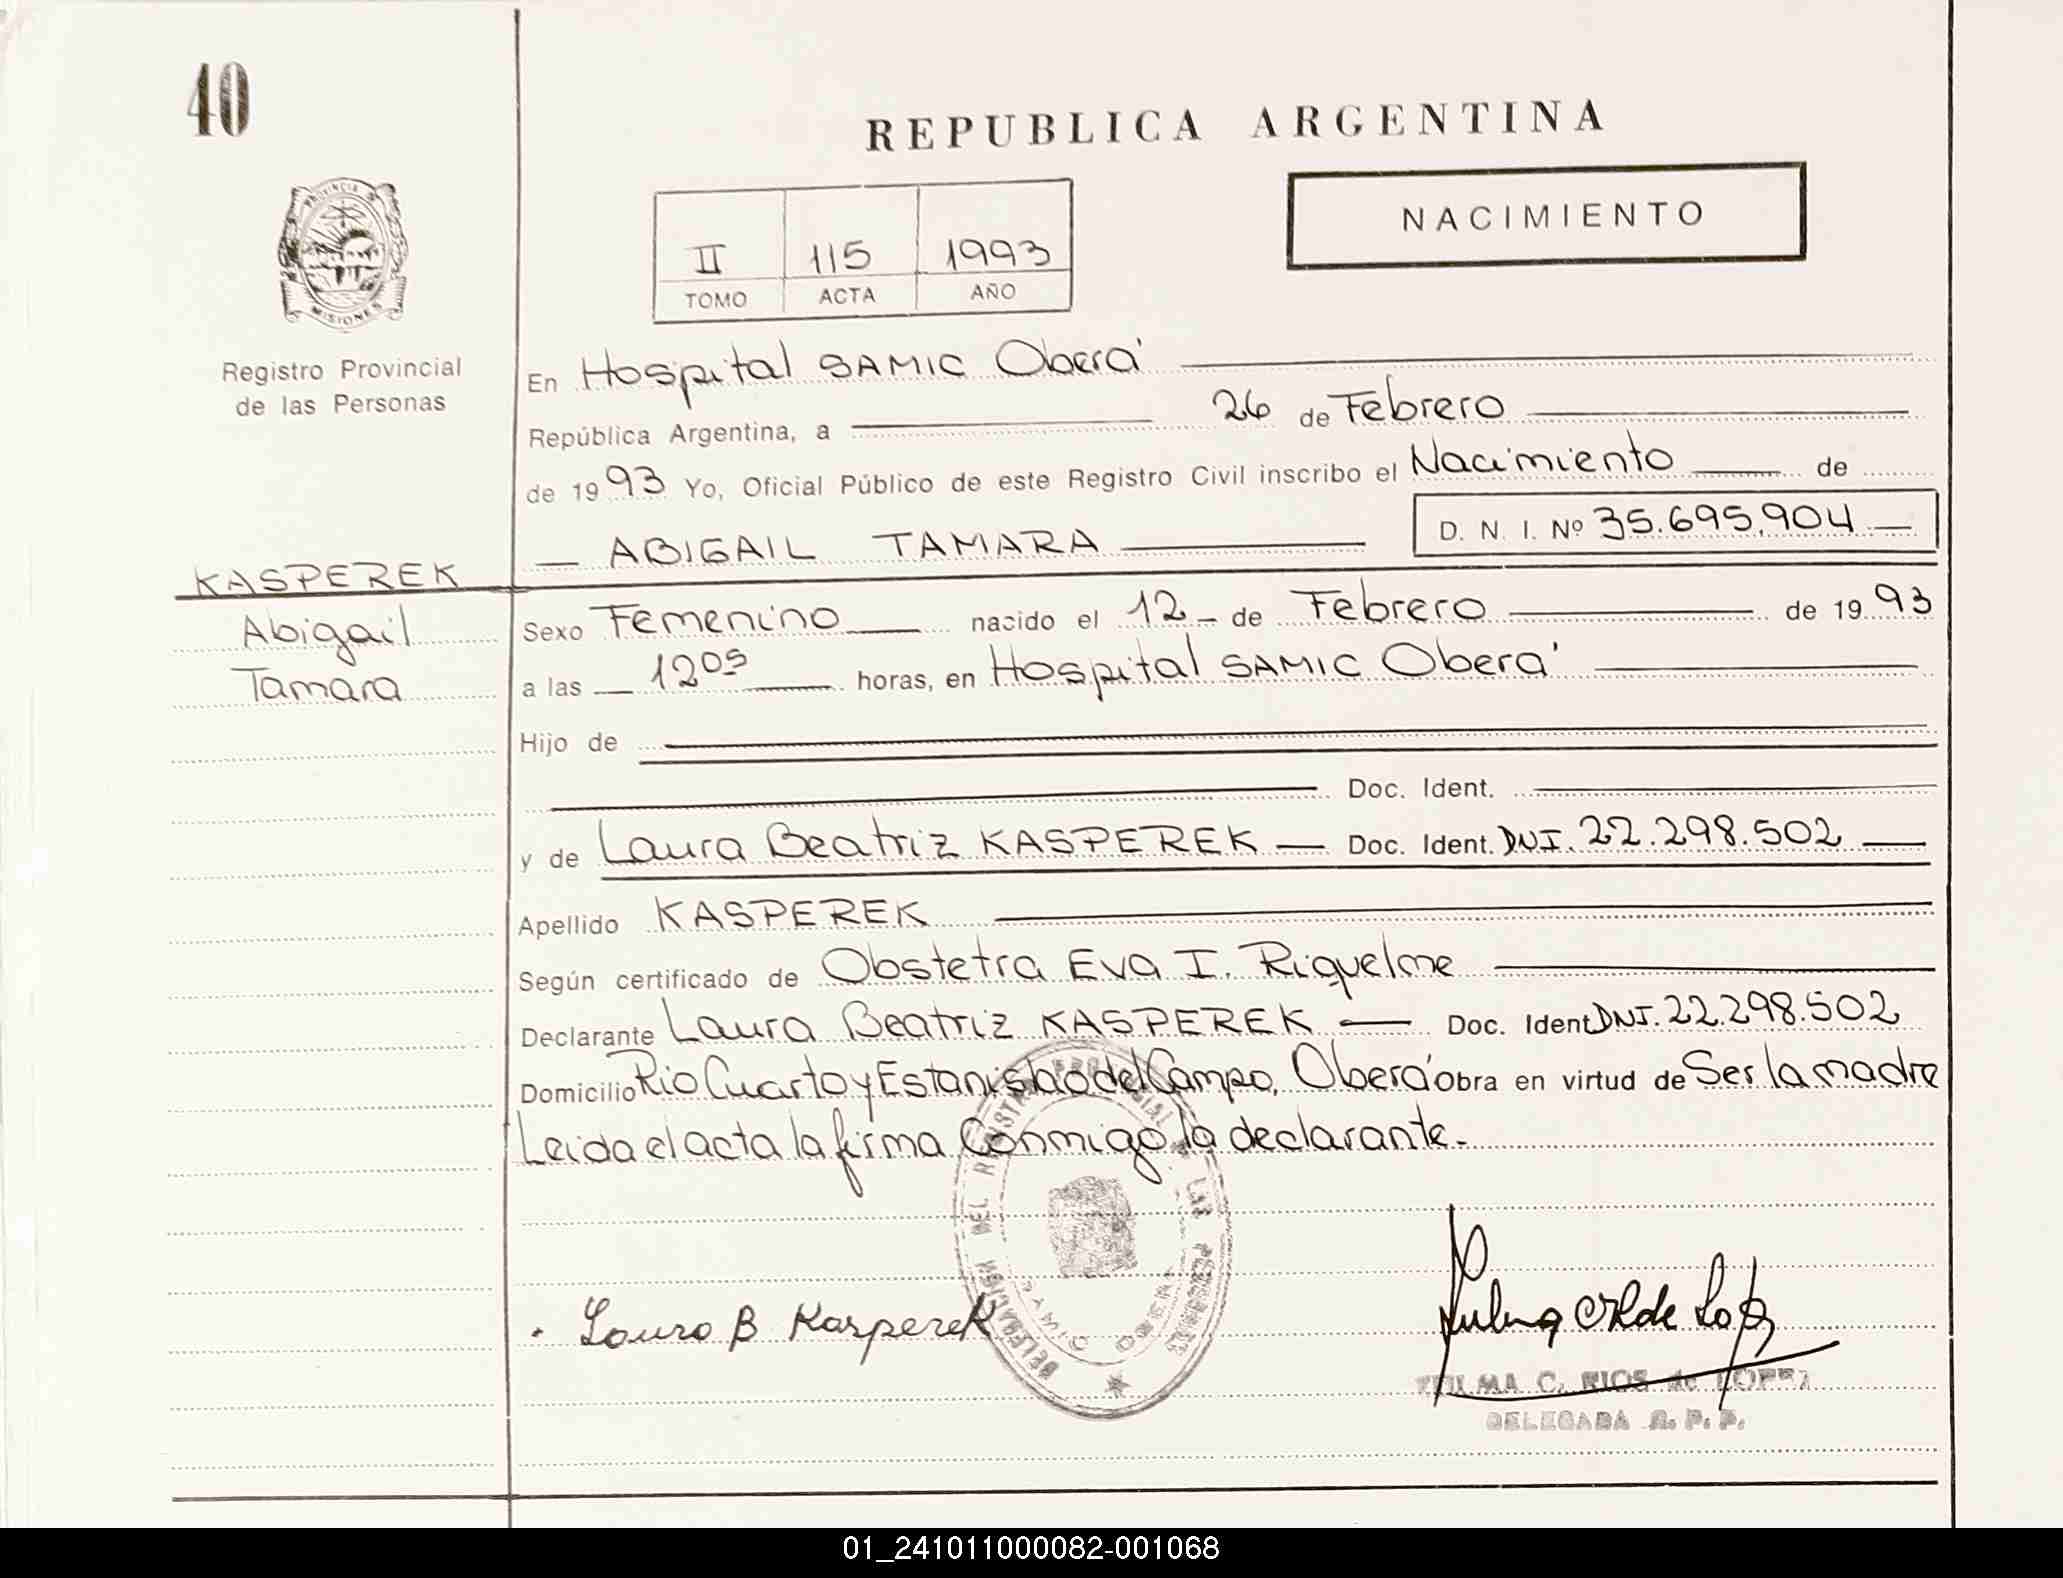 40
REPUBLICA ARGENTINA
NACIMIENTO
II 115 1993
TOMO ACTA AÑO
PROVINCIA DE
MISIONES
Registro Provincial
de las Personas
En Hospital SAMIC Oberá
República Argentina, a 26 de Febrero
de 1993 Yo, Oficial Público de este Registro Civil inscribo el Nacimiento de
ABIGAIL TAMARA D. N. I. Nº 35.695.904
KASPEREK
Abigail
Tamara
Sexo Femenino nacido el 12 de Febrero de 1993
a las 12 05 horas, en Hospital SAMIC Oberá
Hijo de
Doc. Ident.
y de Laura Beatriz KASPEREK Doc. Ident. DNI. 22.298.502
Apellido KASPEREK
Según certificado de Obstetra Eva I. Riquelme
Declarante Laura Beatriz KASPEREK Doc. Ident DNI. 22.298.502
Domicilio Rio Cuarto y Estanislao del Campo, Oberá obra en virtud de Ser la madre
Leida el acta la firma Conmigo la declarante.
DELEGACION DEL REGISTRO PROVINCIAL DE LAS PERSONAS
OBERA
Laura B Kasperek
RIOS de LOPEZ
DELEGADA R. P. P.
01_241011000082-001068